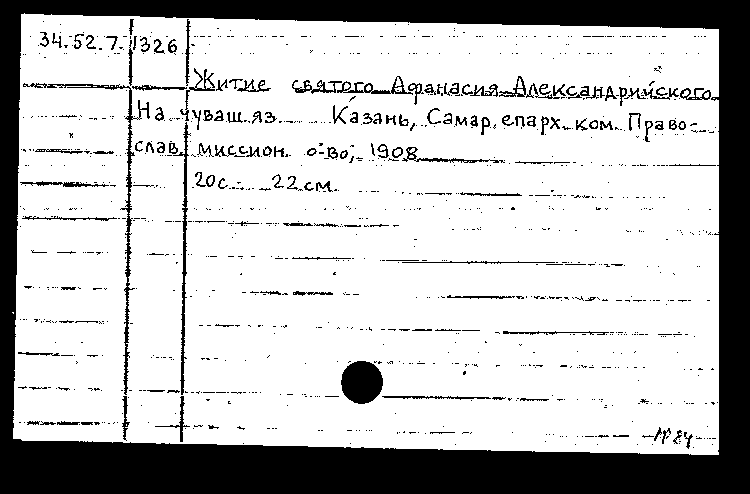 34.52.7. 1326
Житие святого Афанасия Александрийского
На чуваш. яз. Казань, Самар. епарх. ком. Право-
слав. миссион. о-во, 1908
20с. 22см.
№ 84